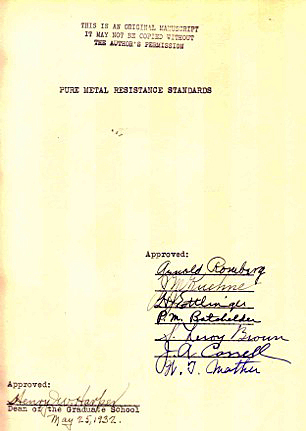 THIS IS AN ORIGINAL MANUSCRIPT
IT MAY NOT BE COPIED WITHOUT
THE AUTHOR'S PERMISSION
PURE METAL RESISTANCE STANDARDS
Approved:
Arnold Romberg
J M Kuehne
P. M. Batchelder
S. Leroy Brown
W. T. Mather
Approved:
Henry W. Harper
Dean of the Graduate School
May 25, 1932.